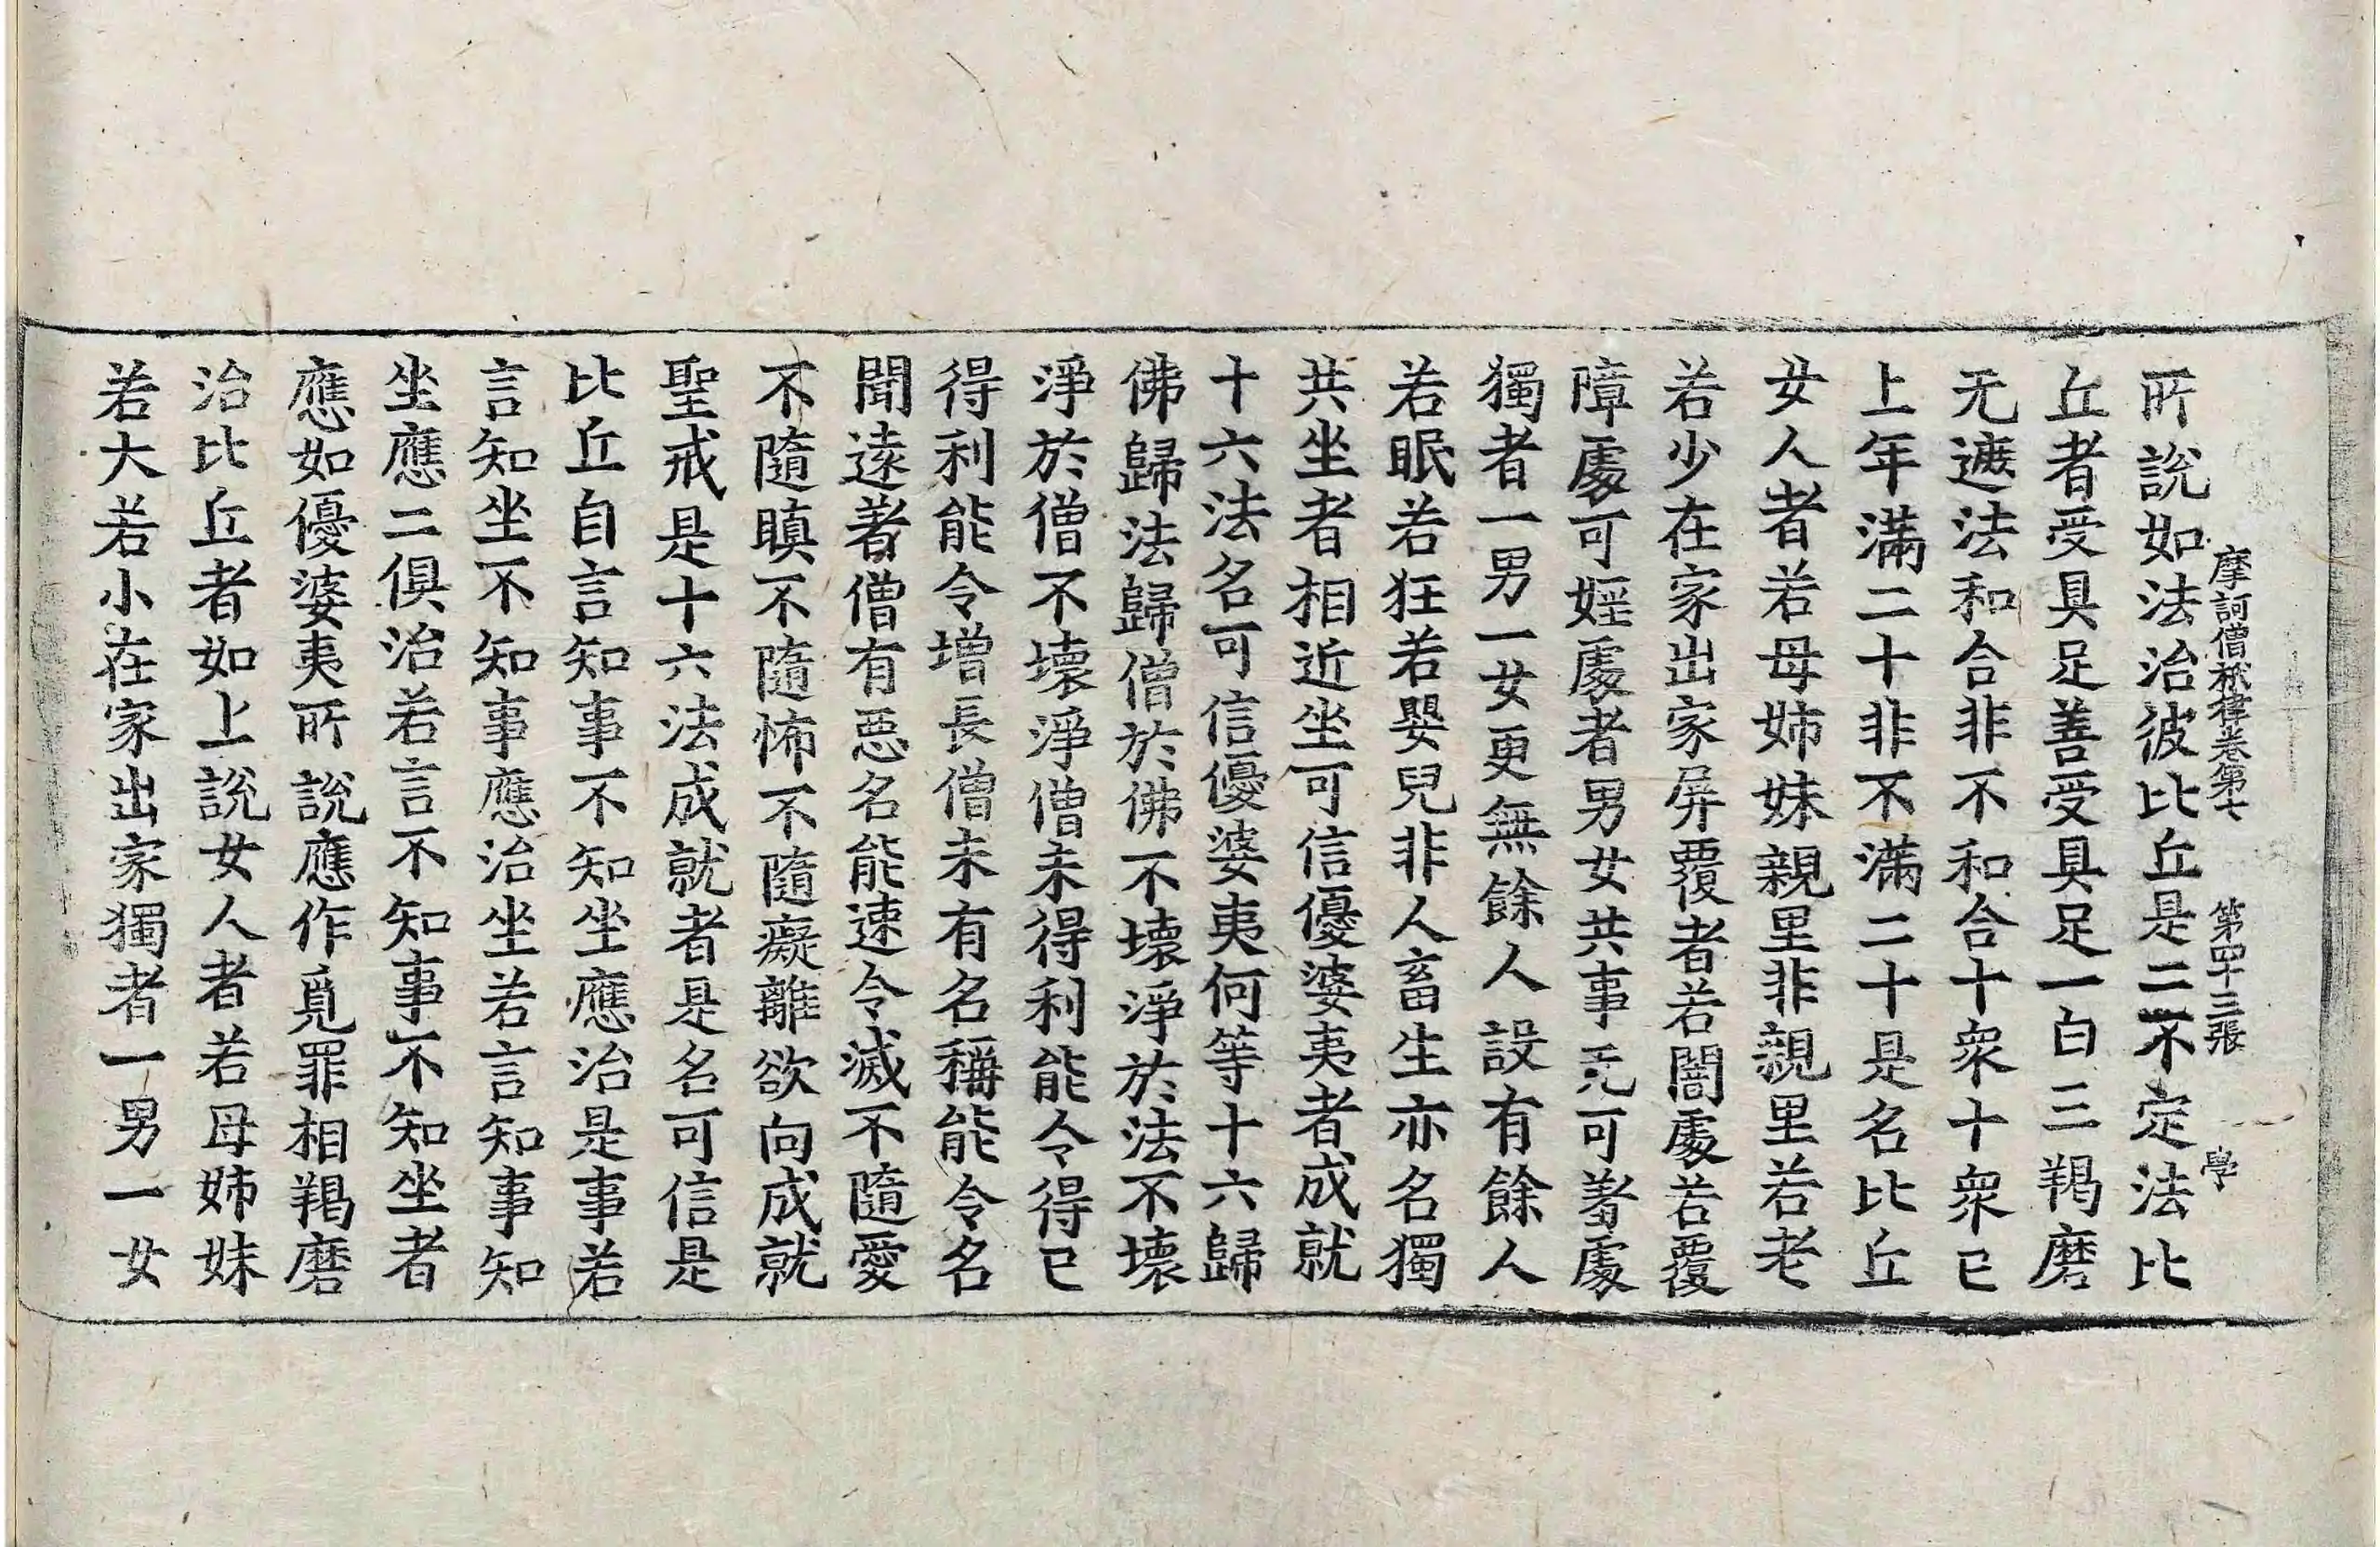 摩訶僧祇律卷第七 第四十三張 學
所說如法治彼比丘是二不定法比
丘者受具足善受具足一白三羯磨
无遮法和合非不和合十衆十衆已
上年滿二十非不滿二十是名比丘
女人者若母姉妹親里非親里若老
若少在家出家屏覆者若闇處若覆
障處可婬處者男女共事无可羞處
獨者一男一女更無餘人設有餘人
若眠若狂若嬰兒非人畜生亦名獨
共坐者相近坐可信優婆夷者成就
十六法名可信優婆夷何等十六歸
佛歸法歸僧於佛不壞淨於法不壞
淨於僧不壞淨僧未得利能令得已
得利能令增長僧未有名稱能令名
聞遠著僧有惡名能速令滅不隨愛
不隨瞋不隨怖不隨癡離欲向成就
聖戒是十六法成就者是名可信是
比丘自言知事不知坐應治是事若
言知坐不知事應治坐若言知事知
坐應二俱治若言不知事不知坐者
應如優婆夷所說應作覓罪相羯磨
治比丘者如上說女人者若母姉妹
若大若小在家出家獨者一男一女